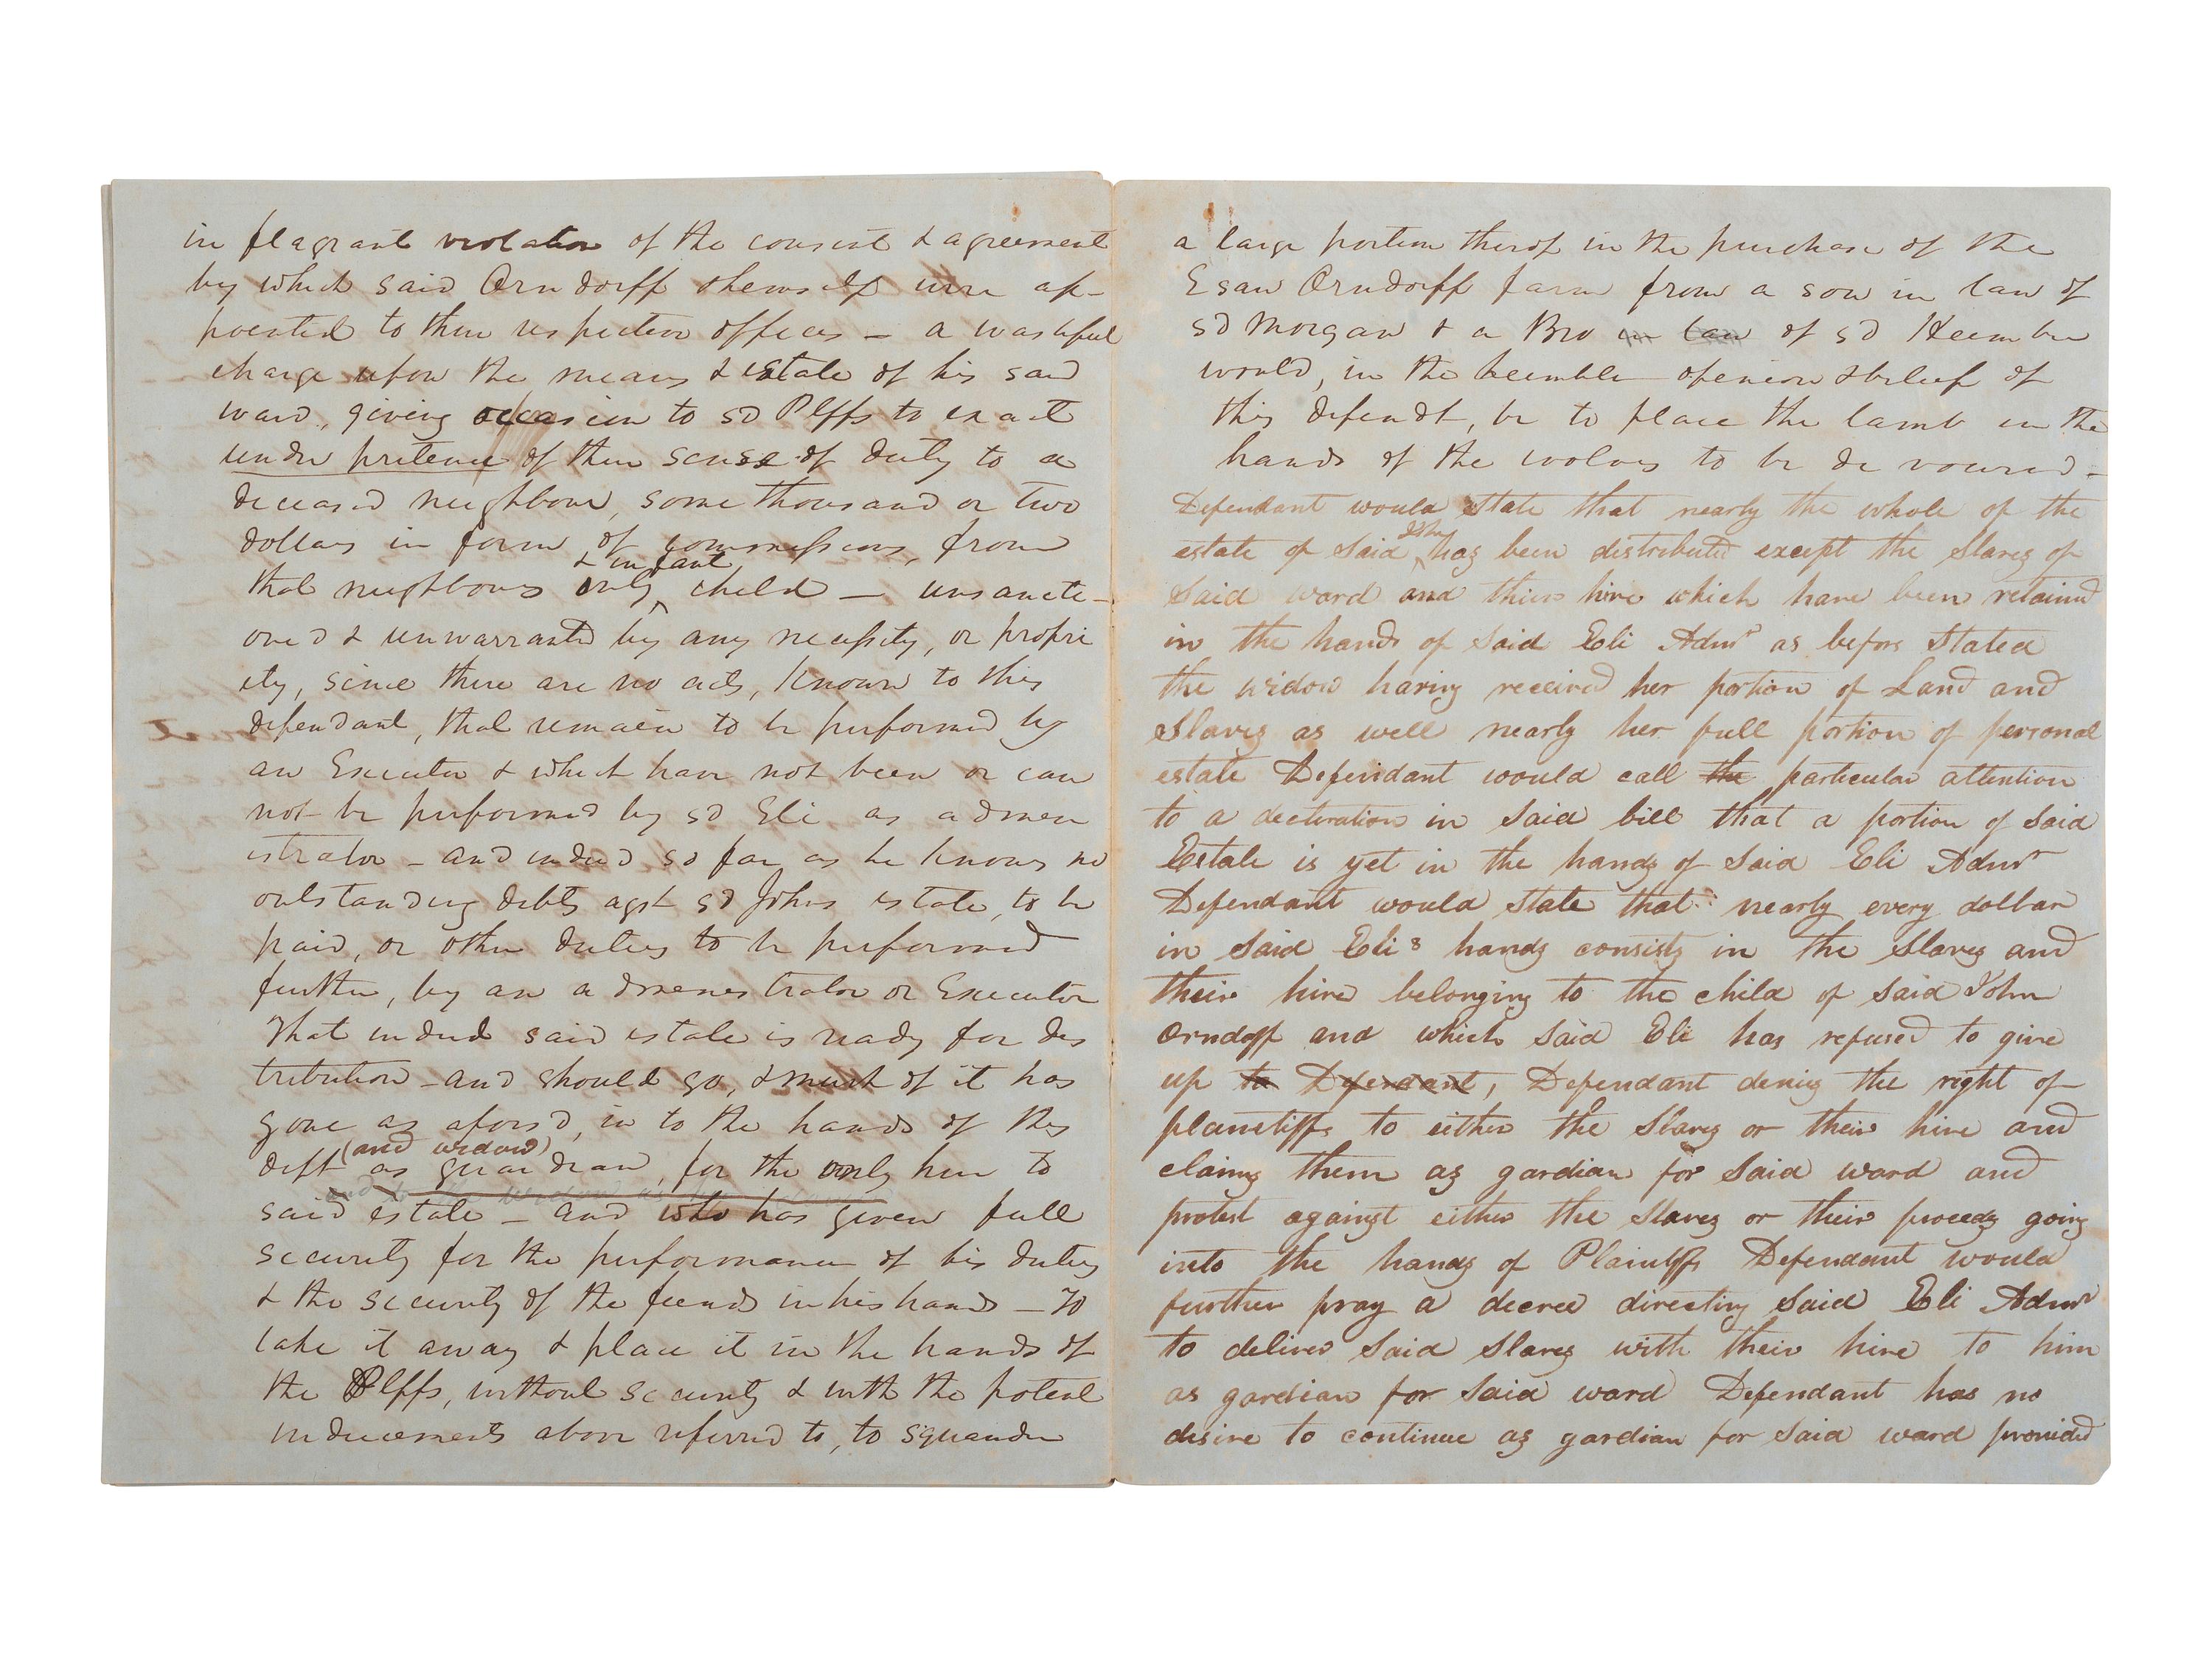 in flagrant violation of the consent & agreement
by which said Orndorff & himself were ap-
pointed to their respective offices — a wasteful
charge upon the means & estate of his said
ward, giving occasion to sd Plffs to exact
under pretence of their sense of duty to a
deceased neighbour, some thousand or two
dollars in form of commissions, from
& infant
that neighbours only child — unsancti-
oned & unwarranted by any necessity, or propri
ety, since there are no acts, known to this
defendant, that remain to be performed by
an Executor & which have not been or can
not be performed by sd Eli as admin
istrator — and indeed so far as he knows no
outstanding debts agst sd Johns estate, to be
paid, or other duties to be performed
further, by an administrator or Executor
That indeed said estate is ready for dis
tribution — and should go, & much of it has
gone as aforsd, in to the hands of this
(and widow)
deft as guardian, for the only heir to
said estate — and who has given full
security for the performance of his duties
& the security of the funds in his hands — To
take it away & place it in the hands of
the Plffs, without security & with the potent
inducements above referred to, to squander
a large portion therof in the purchase of the
Esaw Orndorff farm from a son in law of
sd Morgan & a Bro in law of sd
would, in the humble opinion & belief of
this defendt, be to place the lamb in the
hands of the wolves to be devoured —
Defendant would state that nearly the whole of the
estate of said has been distributed except the slaves of
said ward and their hire which have been retained
in the hands of said Eli Admr as before stated
the widow having received her portion of Land and
slaves as well nearly her full portion of personal
estate Defendant would call the particular attention
to a decleration in said bill that a portion of said
Estate is yet in the hands of said Eli Admr
Defendant would state that nearly every dollar
in said Elis hands consists in the slaves and
their hire belonging to the child of said John
Orndoff and which said Eli has refused to give
up to Defendant, Defendant denies the right of
plaintiffs to either the slaves or their hire and
claims them as gardian for said ward and
protest against either the slaves or their proceeds going
into the hands of Plaintiffs Defendant would
further pray a decree directing said Eli Admr
to deliver said slaves with their hire to him
as gardian for said ward Defendant has no
desire to continue as gardian for said ward provided